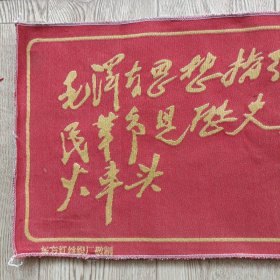 毛泽东思想指
民革命是历史
火车头
东方红丝织厂敬制